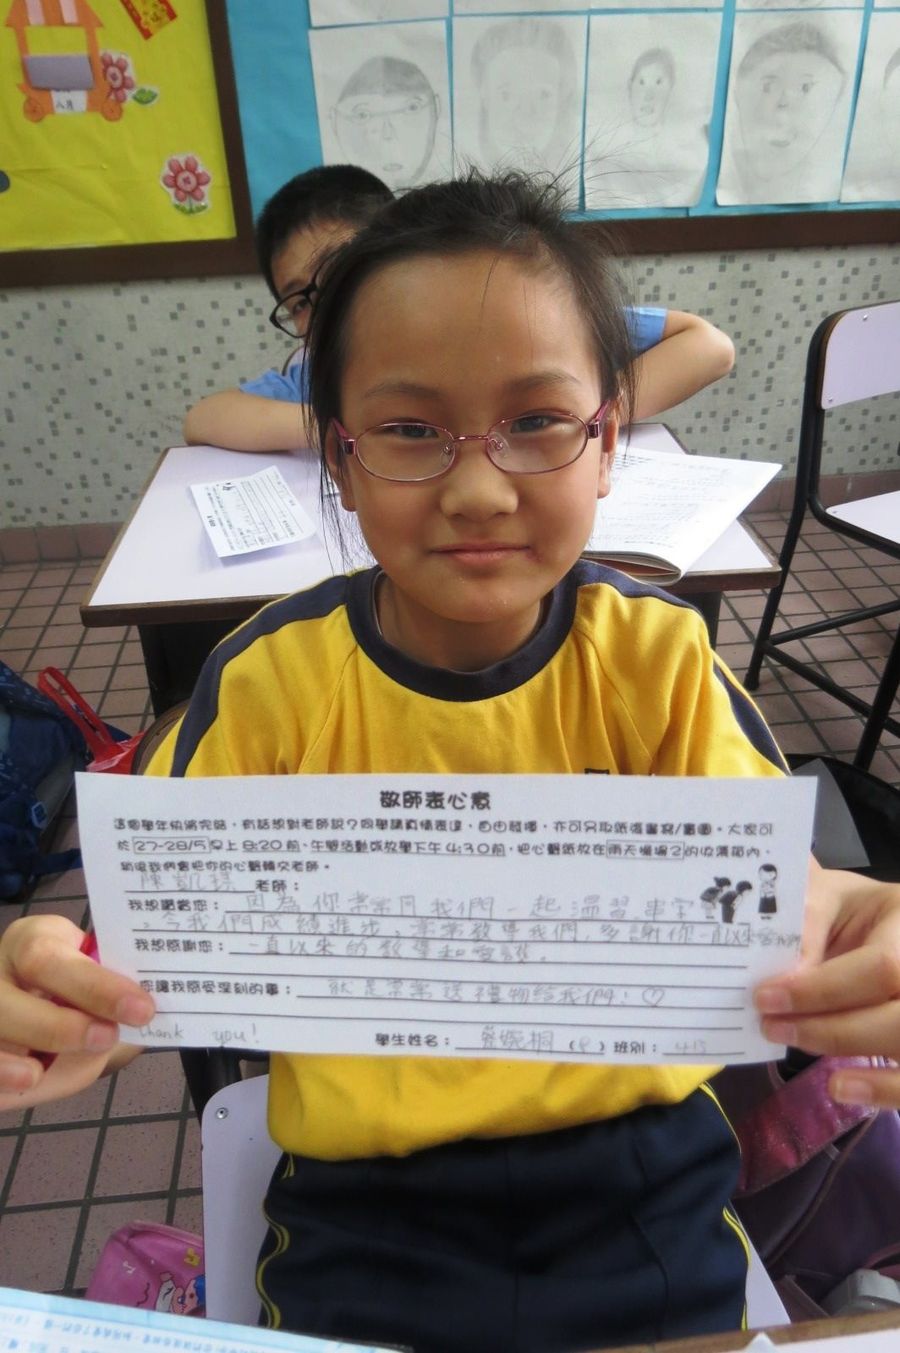 敬師表心意
這個學年快將完結，有話想對老師說？同學請真情表達，自由發揮，亦可另取紙張書寫/畫圖。大家可
於27-28/5早上8:20前、午膳活動或放學下午4:30前，把心聲紙放在雨天操場2的收集箱內。
到時我們會把你的心聲轉交老師。
陳凱 老師：
我想話給您：因為你常常同我們一起溫習,串字
,令我們成績進步,常常教導我們,多謝你一直以來
我想感謝您：一直以來的教導和愛護。
您讓我感受深刻的事：就是常常送禮物給我們!♡
thank you!
學生姓名： 婉桐 ( ) 班別：